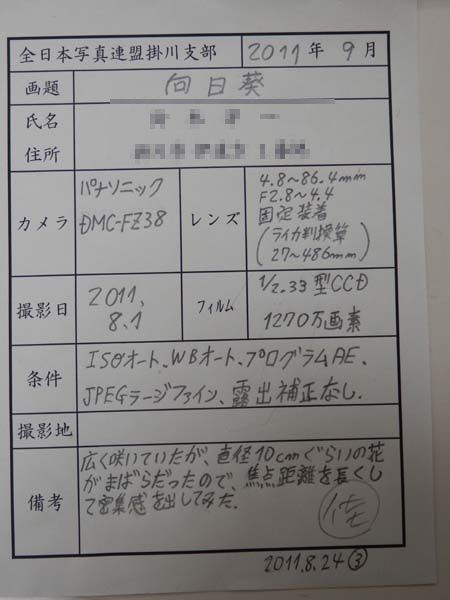 全日本写真連盟掛川支部 2011年 9月
画題 向日葵
氏名
住所
カメラ パナソニック DMC-FZ38
レンズ 4.8~86.4mm
F2.8~4.4
固定装着
(ライカ判換算
27~486mm)
撮影日 2011.
8.1
フィルム 1/2.33型CCD
1270万画素
条件 ISOオート、WBオート、プログラムAE、
JPEGラージファイン、露出補正なし.
撮影地
備考 広く咲いていたが、直径10cmぐらいの花
がまばらだったので、焦点距離を長くし
て密集感を出してみた.
佐
2011.8.24③